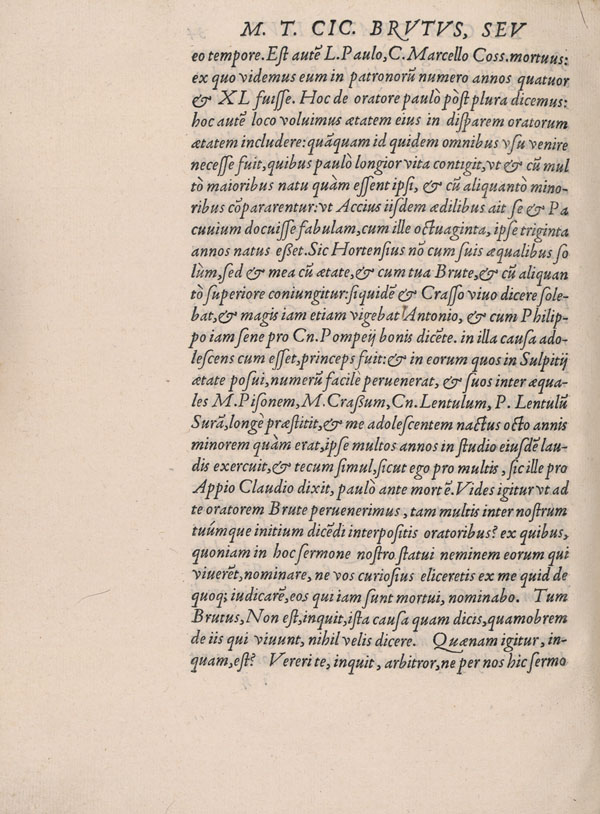 M. T. CIC. BRVTVS, SEV
eo tempore. Est autē L. Paulo, C. Marcello Coss. mortuus:
ex quo videmus eum in patronorū numero annos quatuor
& XL fuisse. Hoc de oratore paulò pòst plura dicemus:
hoc autē loco voluimus ætatem eius in disparem oratorum
ætatem includere: quāquam id quidem omnibus vsu venire
necesse fuit, quibus paulò longior vita contigit, vt & cū mul
tò maioribus natu quàm essent ipsi, & cū aliquantò mino-
ribus cōpararentur: vt Accius iisdem ædilibus ait se & Pa
cuuium docuisse fabulam, cum ille octuaginta, ipse triginta
annos natus esset. Sic Hortensius nō cum suis æqualibus so
lùm, sed & mea cū ætate, & cum tua Brute, & cū aliquan
tò superiore coniungitur: siquidē & Crasso viuo dicere sole-
bat, & magis iam etiam vigebat Antonio, & cum Philip-
po iam sene pro Cn. Pompeij bonis dicēte. in illa causa ado-
lescens cum esset, princeps fuit: & in eorum quos in Sulpitij
ætate posui, numerū facilè peruenerat, & suos inter æqua-
les M. Pisonem, M. Crassum, Cn. Lentulum, P. Lentulū
Surā, longè præstitit, & me adolescentem nactus octo annis
minorem quàm erat, ipse multos annos in studio eiusdē lau-
dis exercuit, & tecum simul, sicut ego pro multis, sic ille pro
Appio Claudio dixit, paulò ante mortē. Vides igitur vt ad
te oratorem Brute peruenerimus, tam multis inter nostrum
tuúmque initium dicēdi interpositis oratoribus? ex quibus,
quoniam in hoc sermone nostro statui neminem eorum qui
viuerēt, nominare, ne vos curiosius eliceretis ex me quid de
quoq; iudicarē, eos qui iam sunt mortui, nominabo. Tum
Brutus, Non est, inquit, ista causa quam dicis, quamobrem
de iis qui viuunt, nihil velis dicere. Quænam igitur, in-
quam, est? Vereri te, inquit, arbitror, ne per nos hic sermo